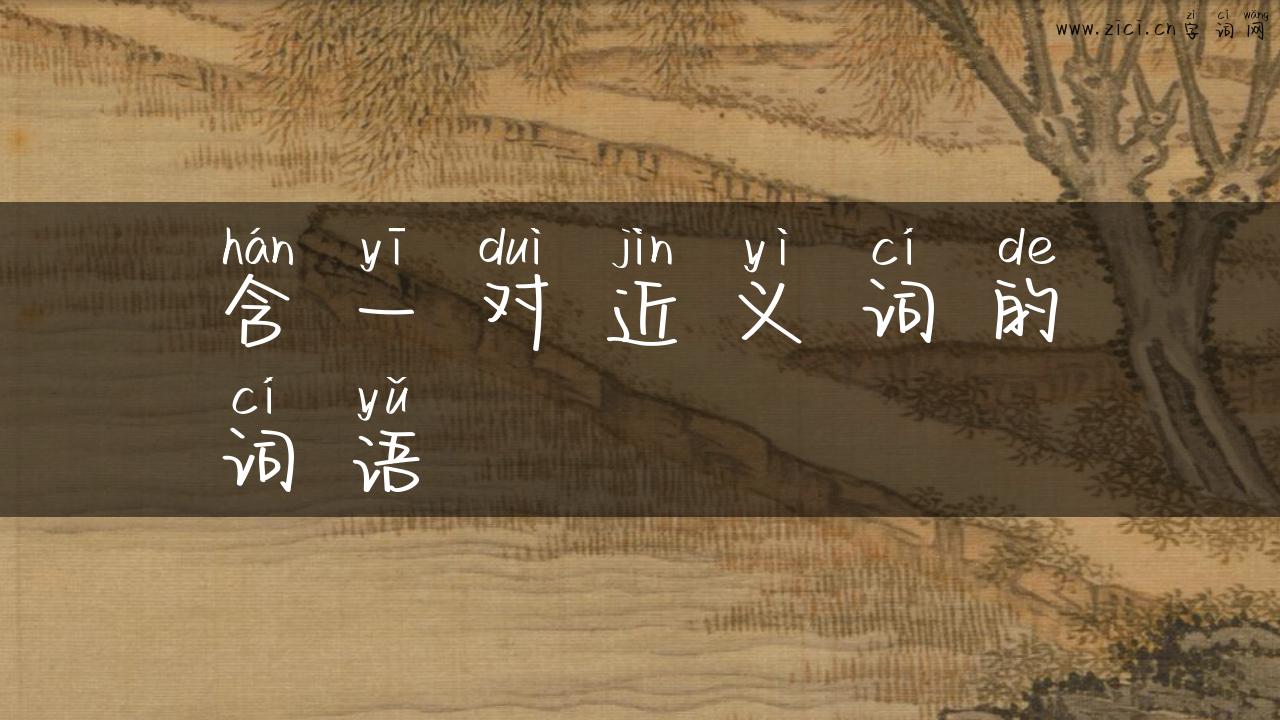 zì cí wǎng
www.zici.cn字词网
hán yī duì jìn yì cí de
含一对近义词的
cí yǔ
词语